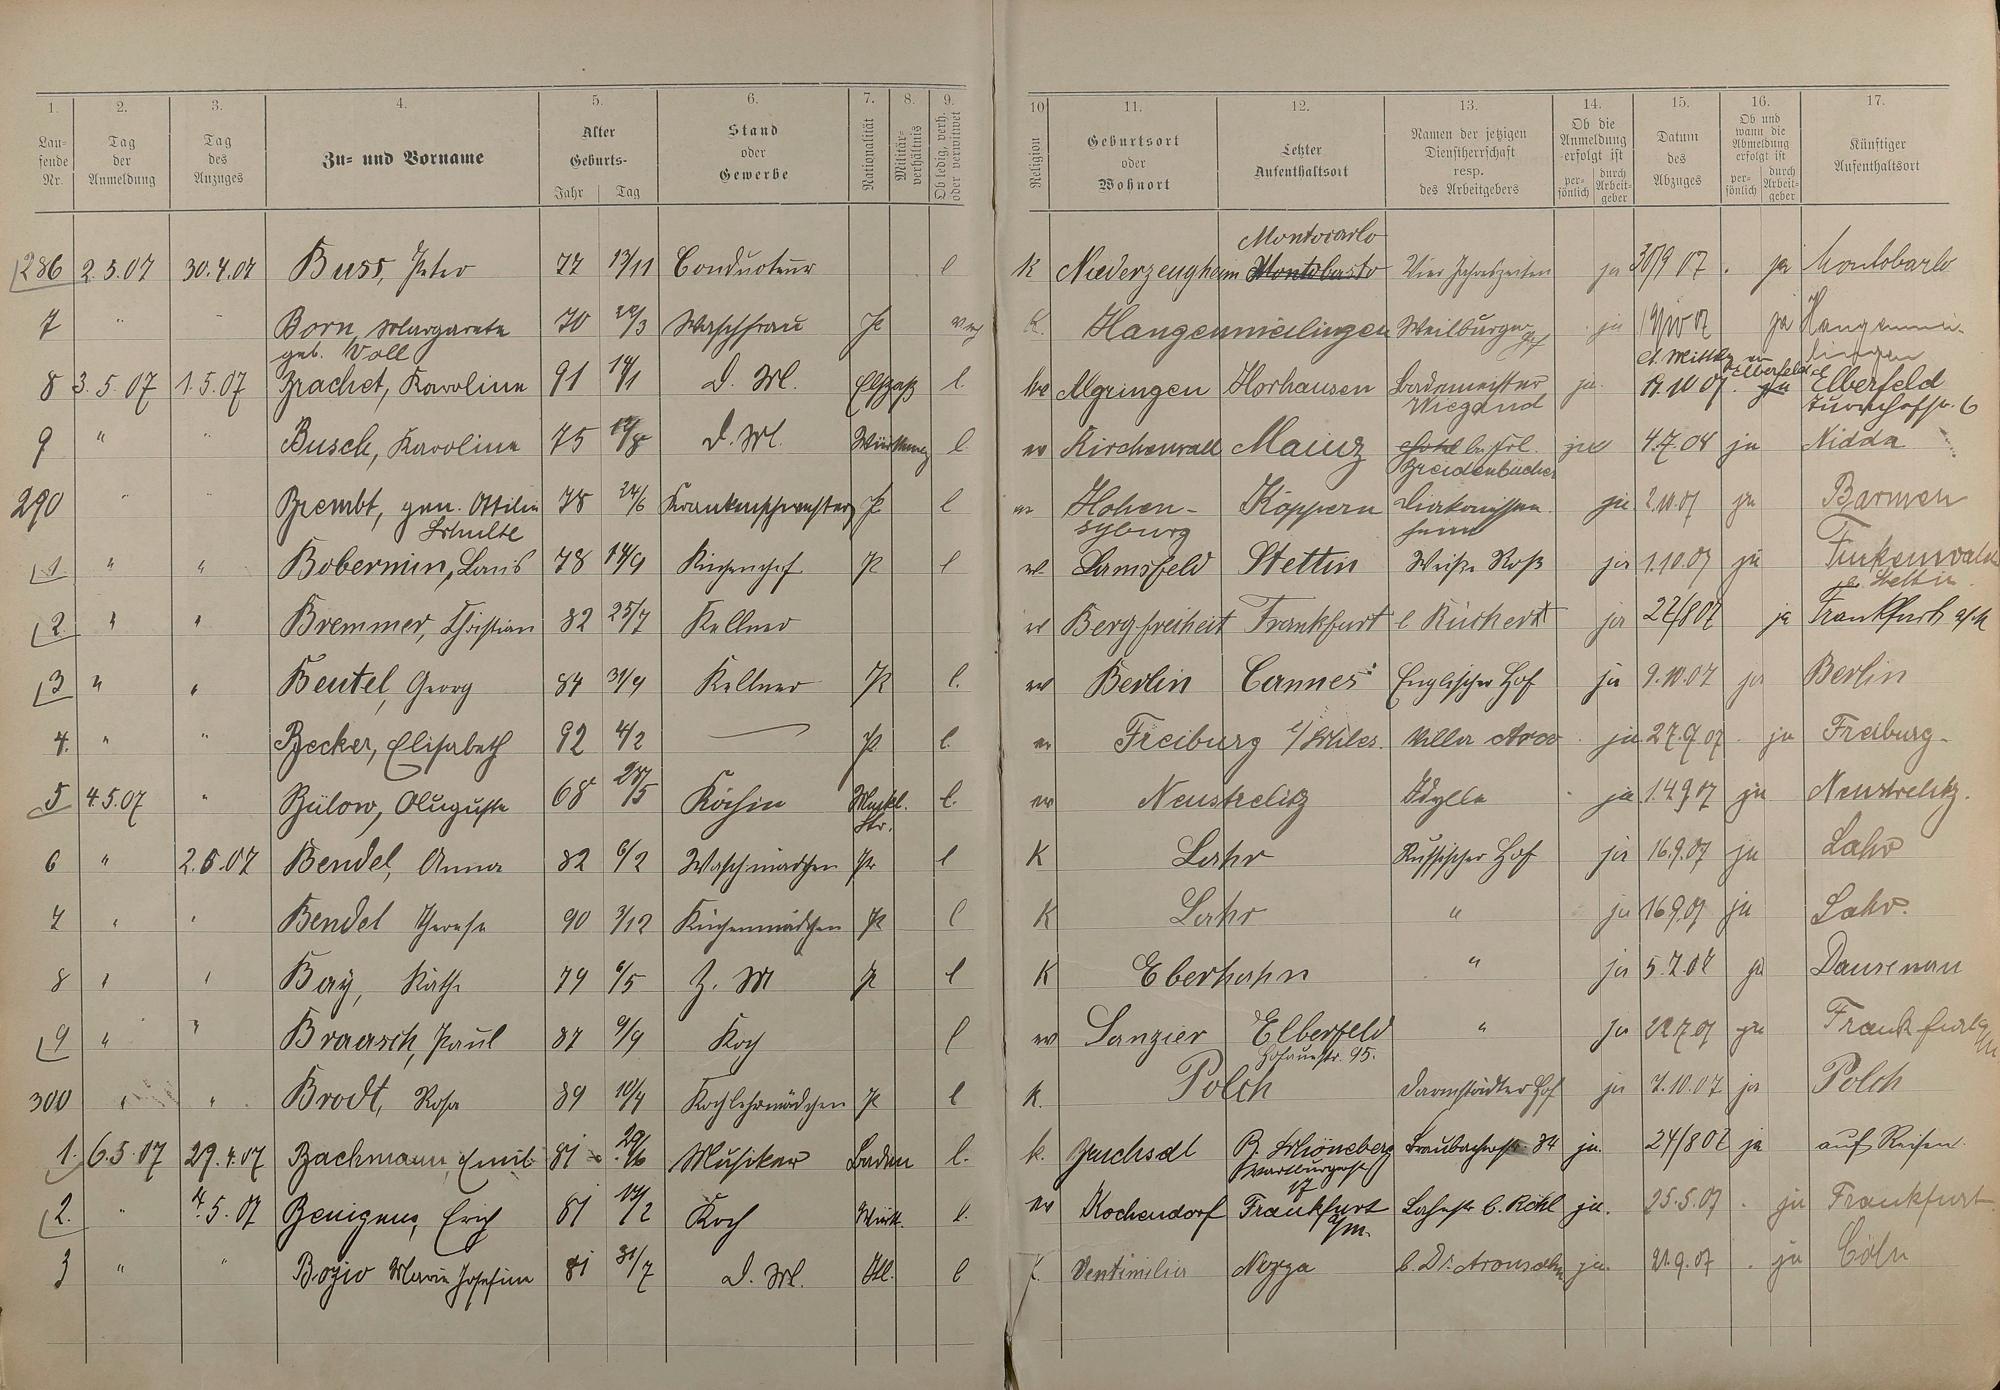 1. 2. 3. 4. 5. 6. 7. 8. 9. 10 11. 12. 13. 14. 15. 16. 17.
Lau-
fende
Nr.
Tag
der
Anmeldung
Tag
des
Anzuges
Zu- und Vorname
Alter
Geburts-
Jahr Tag
Stand
oder
Gewerbe
Nationalität
Militär-
verhältnis
Ob ledig, verh.
oder verwitwet
Religion
Geburtsort
oder
Wohnort
Letzter
Aufenthaltsort
Namen der jetzigen
Dienstherrschaft
resp.
des Arbeitgebers
Ob die
Anmeldung
erfolgt ist
per-
sönlich
durch
Arbeit-
geber
Datum
des
Abzuges
Ob und
wann die
Abmeldung
erfolgt ist
per-
sönlich
durch
Arbeit-
geber
Künftiger
Aufenthaltsort
Montocarlo
286 2.5.07 30.4.07 Buss, Peter 77 13/11 Conducteur l K Niederzeugheim Vier Jahreszeiten ja 30/9 07 ja
7 " " Born, Margarete 70 Waschfrau P K. Hangenmeilingen Weilburger Hof ja ja Hangenmei-
geb. Voll lingen
8 3.5.07 1.5.07 Brachet, Karoline 91 14/1 D. M. Elsaß l. Algringen Horhausen Bademeister ja. ja Elberfeld
Wiegand
9 " " Busch, Karoline 75 D. M. Württemberg l. ev Mainz b. Frl. ja 4.7.08 ja Nidda
Breidenbücher
290 " " Brembt, gen. Ottilie 78 24/6 Krankenschwester P l ev Hohen- Köppern Diakonissen ja 2.10.07 ja Barmen
Schulte syburg heim
1 " " Bobermin, Louis 78 14/9 Küchenchef P l ev Lamsfeld Stettin Weißes Roß ja 1.10.07 ja Finkenwalde
b. Stettin
2. " " Bremmer, Christian 82 25/7 Kellner ev Bergfreiheit Frankfurt ja 27/8 07 ja Frankfurt a/M
3 " " Beutel, Georg 84 Kellner P l. ev Berlin Cannes Englischer Hof ja 9.10.07 ja Berlin
4. " " Becker, Elisabeth 92 4/2 P l. ev Freiburg i/Schles. Villa ja 27.9.07 ja Freiburg
5 4.5.07 " Bülow, Auguste 68 Köchin Meckl. l. ev Neustrelitz Idylle ja 14.9.07 ja Neustrelitz.
Str.
6 " 2.5.07 Bendel, Anna 82 6/2 Waschmädchen Pr l K Lahr Russischer Hof ja 16.9.07 ja Lahr
7 " " Bendel Therese 90 3/12 Küchenmädchen P l K Lahr " ja 16.9.07 ja Lahr.
8 " " Bay, Käthe 79 6/5 Z. M P l K Eberhahn " ja 5.7.07 ja Dausenau
9 " " Braasch, Paul 87 9/9 Koch l ev Sanzier Elberfeld " ja 22.7.07 ja Frankfurt a/M
Hofauestr. 95.
300 " " Brodt, Rosa 89 10/4 Kochlehrmädchen P l K. Polch Darmstädter Hof ja 7.10.07 ja Polch
1. 6.5.07 29.4.07 Bachmann, Emil 81 29/6 Musiker Baden l. k. Bruchsal B. Schöneberg Traubachstr. 34 ja. 24/8 07 ja auf Reisen.
Wartburgerstr
17
2. " 4.5.07 Benignus, Erich 81 Koch Württ. l. ev Kochendorf Frankfurt b. Röhl ja. 25.5.07 ja Frankfurt.
a/m.
3 " " Bogio Marie Josefine 81 31/7 D. M. Ital. l k. Ventimilia Nizza b. Dr. Aronsohn ja. 21.9.07 ja Cöln